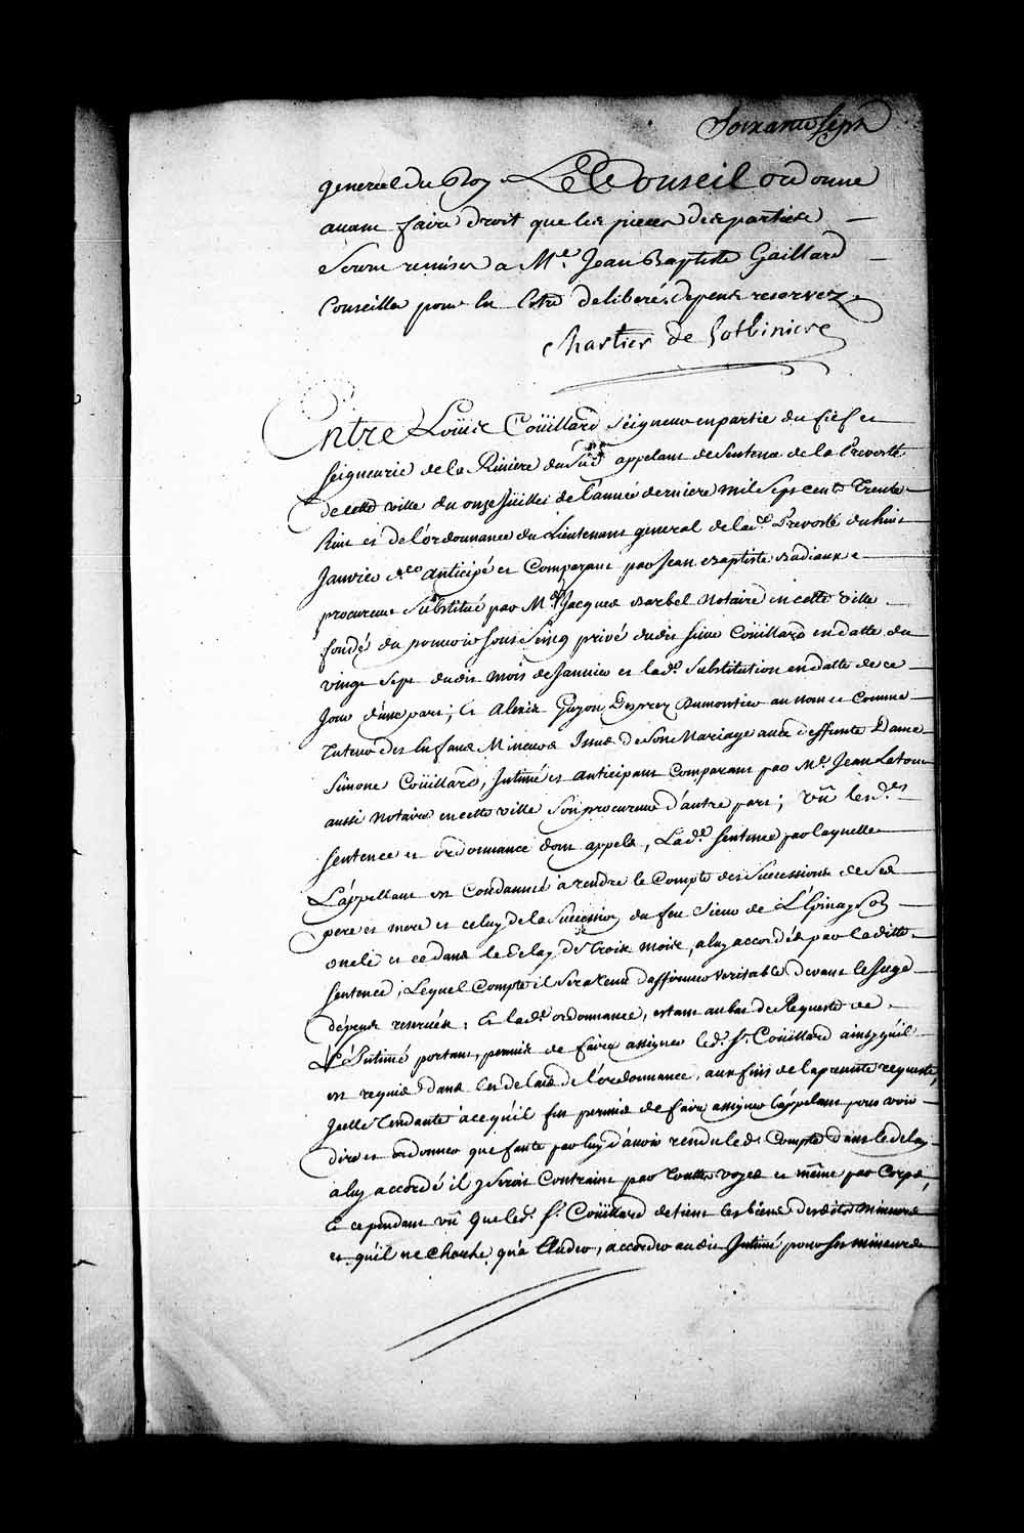 Soixante sept
general du Roy Le Conseil ordonne
avant faire droit que les pieces des parties
Seront remises a Me. Jean Baptiste Gaillard
Conseiller pour en Estre deliberé, depens reservez.
Chartier de Lotbiniere
Entre Loüis Coüillard seigneur en partie du fief et
seigneurie de la Riviere du Sud appelant de Sentence de la Prevosté
de cette ville du onze Juillet de l'année derniere mil Sept cent Trente
Et de l'ordonnance du Lieutenant general de lade. Prevosté du huit
Janvier anticipé et Comparant par Jean Baptiste
procureur Substitué par Me. Jacques Barbel Notaire en cette ville
fondé du pouvoir sous Seing privé dudit sieur Coüillard en datte du
vingt Sept dudit mois de Janvier et lade. Substitution en datte de ce
Jour d'une part; Et Alexis Guyon Desprez Dumontier au nom et Comme
Tuteur des Enfans Mineurs Issus de Son Mariage avec deffunte Dame
Simone Coüillard, Intimé et anticipant Comparant par Me. Jean Latour
aussi Notaire en cette ville Son procureur d'autre part; Vû lesdes.
Sentence et ordonnance dont appels, Lade. Sentence par laquelle
L'appellant est Condamné a rendre le Compte des Successions de Ses
pere et mere et celuy de la Succession du feu Sieur de L'Epinay Son
oncle et ce dans le Delay de Trois mois, a luy accordés par la ditte
Sentence, Lequel Compte il Sera tenu d'affirmer veritable devant le Juge
dépens reservés; Et lade. ordonnance, estant au bas de Requeste de
L'Intimé portant, permis de faire assigner led. Sr. Coüillard ainsy qu'il
est requis dans les delais de l'ordonnance, aux fins de la presente requeste,
Icelle Tendante a ce qu'il fut permis de faire assigner l'appelant pour voir
dire et ordonner que faute par luy d'avoir rendu led. Compte dans le delay
a luy accordé il y seroit Contraint par toutes voyes et même par Corps,
Et cependant vû que led. Sr. Coüillard detient les biens desdits mineurs
et qu'il ne cherche qu'a Eluder, accorder audit Intimé pour ses mineurs